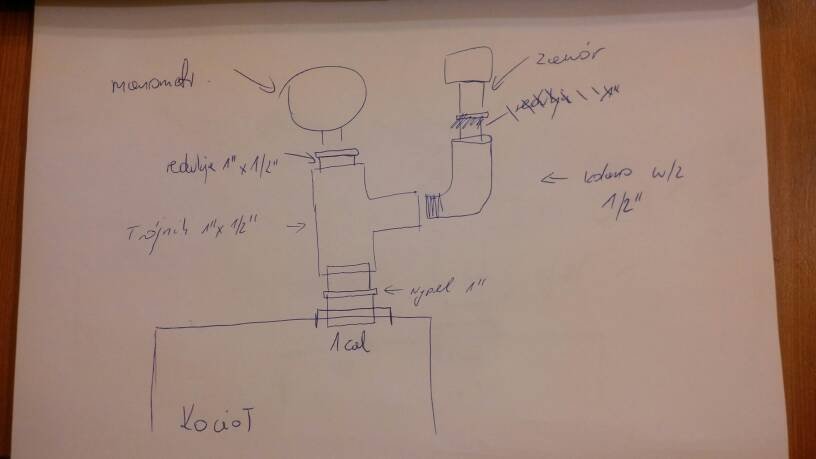 manometr
zawór
redukcja 1" x 1/2"
kolano w/z
1/2"
Trójnik 1" x 1/2"
nypel 1"
1 cal
Kocioł